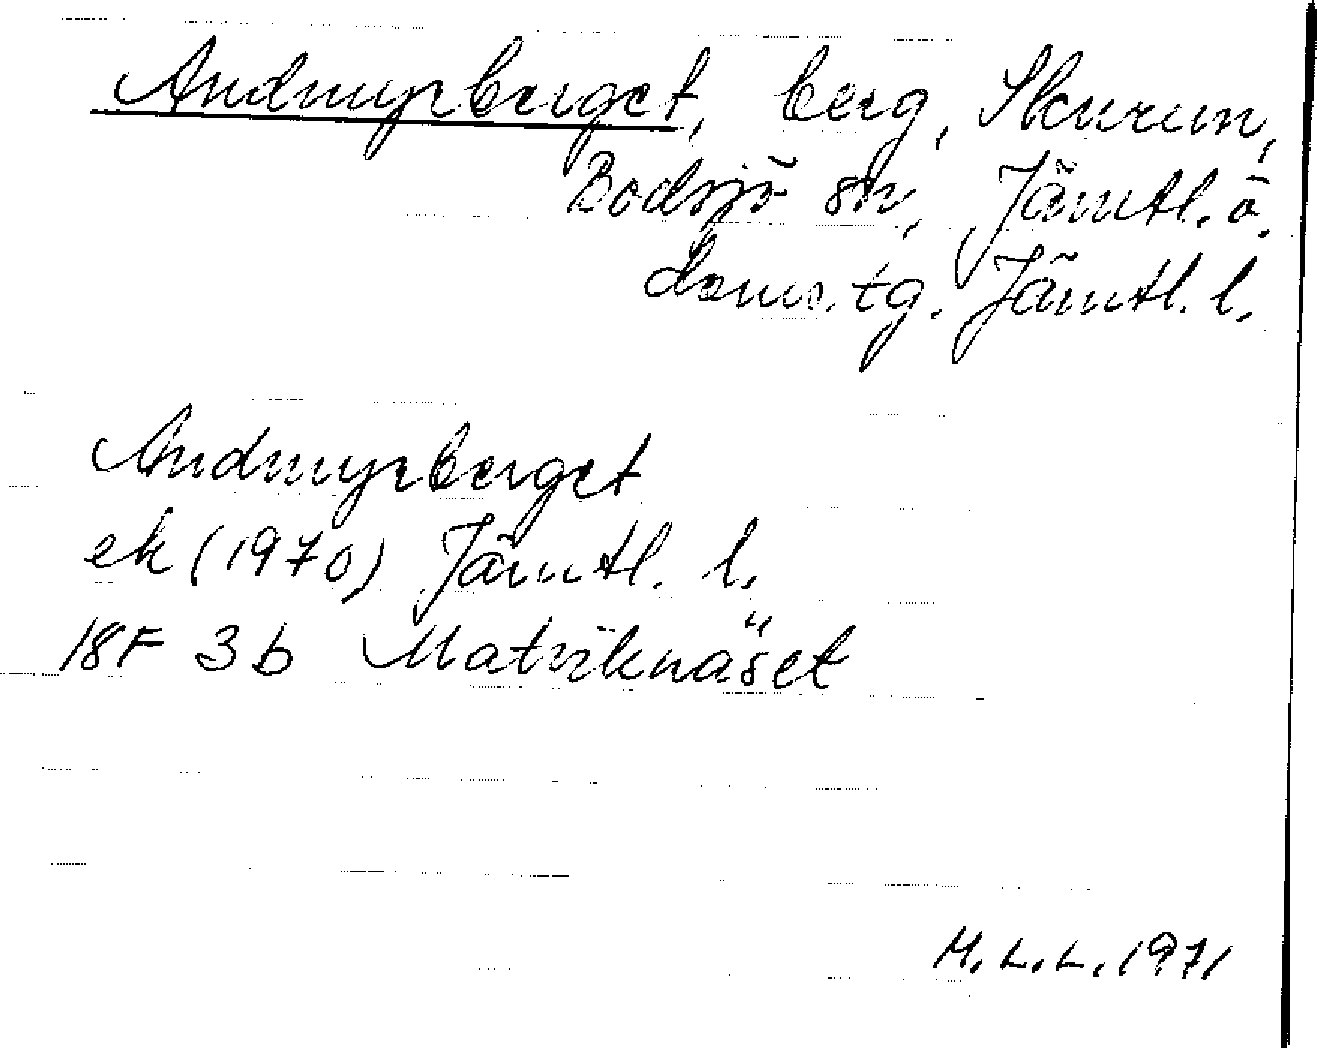 Andmyrberget, berg, Skurun,
Bodsjö sn, Jämtl. ö.
doms.tg. Jämtl. l.
Andmyrberget
ek (1970) Jämtl. l.
18F 3b Matviknäset
M.L.L. 1971